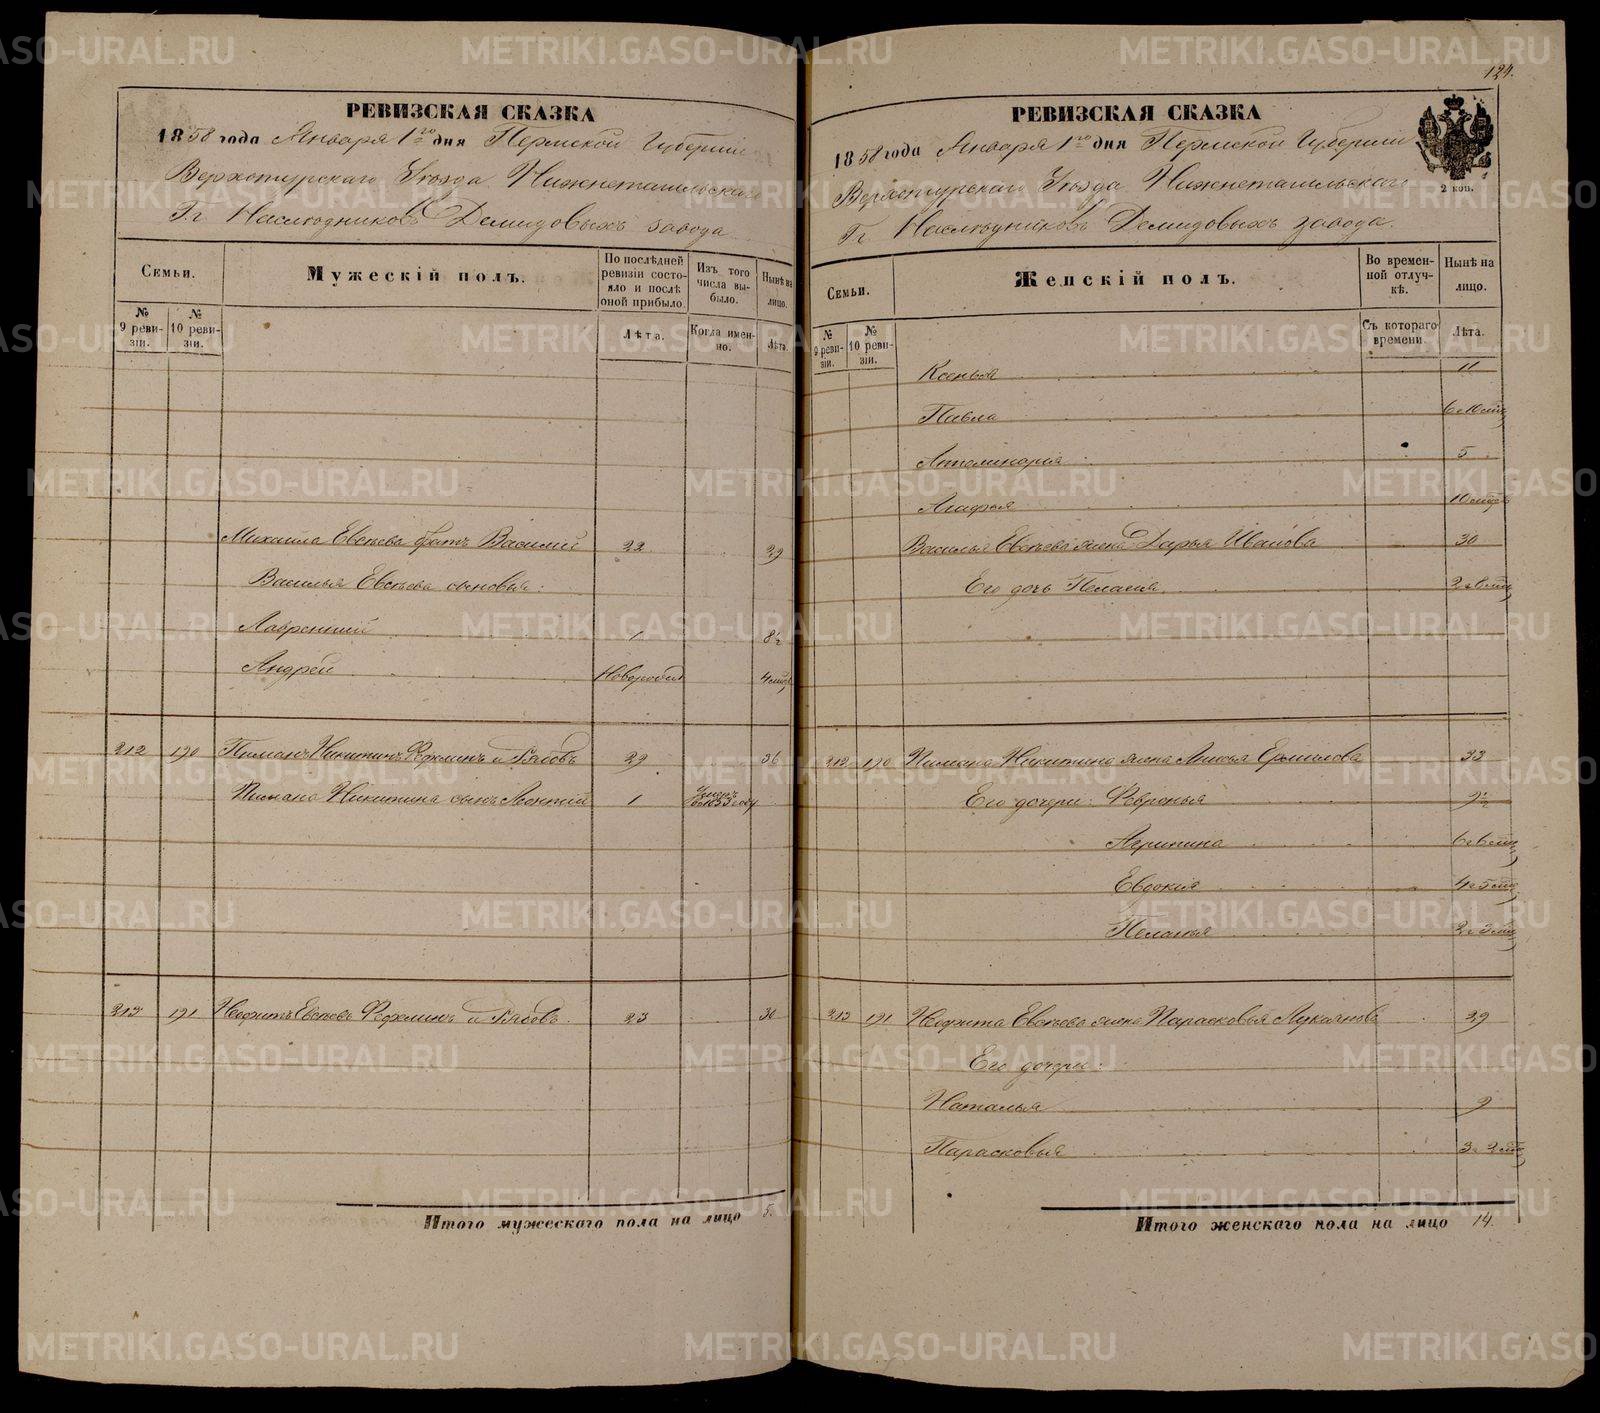 124.
РЕВИЗСКАЯ СКАЗКА
1858 года Января 1го дня Пермской Губернии
Верхотурскаго Уѣзда Нижнетагильскаго
Гг Наслѣдниковъ Демидовыхъ завода
Семьи.
Мужескій полъ.
По послѣдней ревизіи состояло и послѣ оной прибыло.
Изъ того числа выбыло.
Нынѣ на лицо.
№ 9 ревизіи.
№ 10 ревизіи.
Лѣта.
Когда именно.
Лѣта.
Михаила Евсѣева братъ Василий 22 29
Василья Евсѣева сыновья:
Лаврентий 1 8½
Андрей Новорожд 4 мѣс
212 190 Пиманъ Никитинъ Фофилинъ и Бабовъ 29 36
Пимана Никитина сынъ Леонтій 1 Умеръ въ 1853 году
213 191 Неофитъ Евсѣевъ 23 30
Итого мужескаго пола на лицо 5.
РЕВИЗСКАЯ СКАЗКА
1858 года Января 1го дня Пермской Губернии
Верхотурскаго Уѣзда Нижнетагильскаго
Гг. Наслѣдниковъ Демидовыхъ завода.
2 коп.
Семьи.
Женскій полъ.
Во временной отлучкѣ.
Нынѣ на лицо.
№ 9 ревизіи.
№ 10 ревизіи.
Съ котораго времени.
Лѣта.
Ксенья 11
Павла 6 и 10 мѣс
Апполинария 5
Агафья 10 мѣсяц
Василья Евсѣева жена Дарья Иванова 30
Его дочь Пелагия 2 и 6 мѣс
212 190 Пимана Никитина жена Анисья Ермилова 33
Его дочери: Февронья 9½
Агрипина 6 и 6 мѣс
Евдокия 4 и 5 мѣс
Пелагья 2 и 3 мѣс
213 191 Неофита Евсѣева жена Парасковья Лукоянова 29
Его дочери:
Наталья 9
Парасковья 3 и 2 мѣс
Итого женскаго пола на лицо 14.